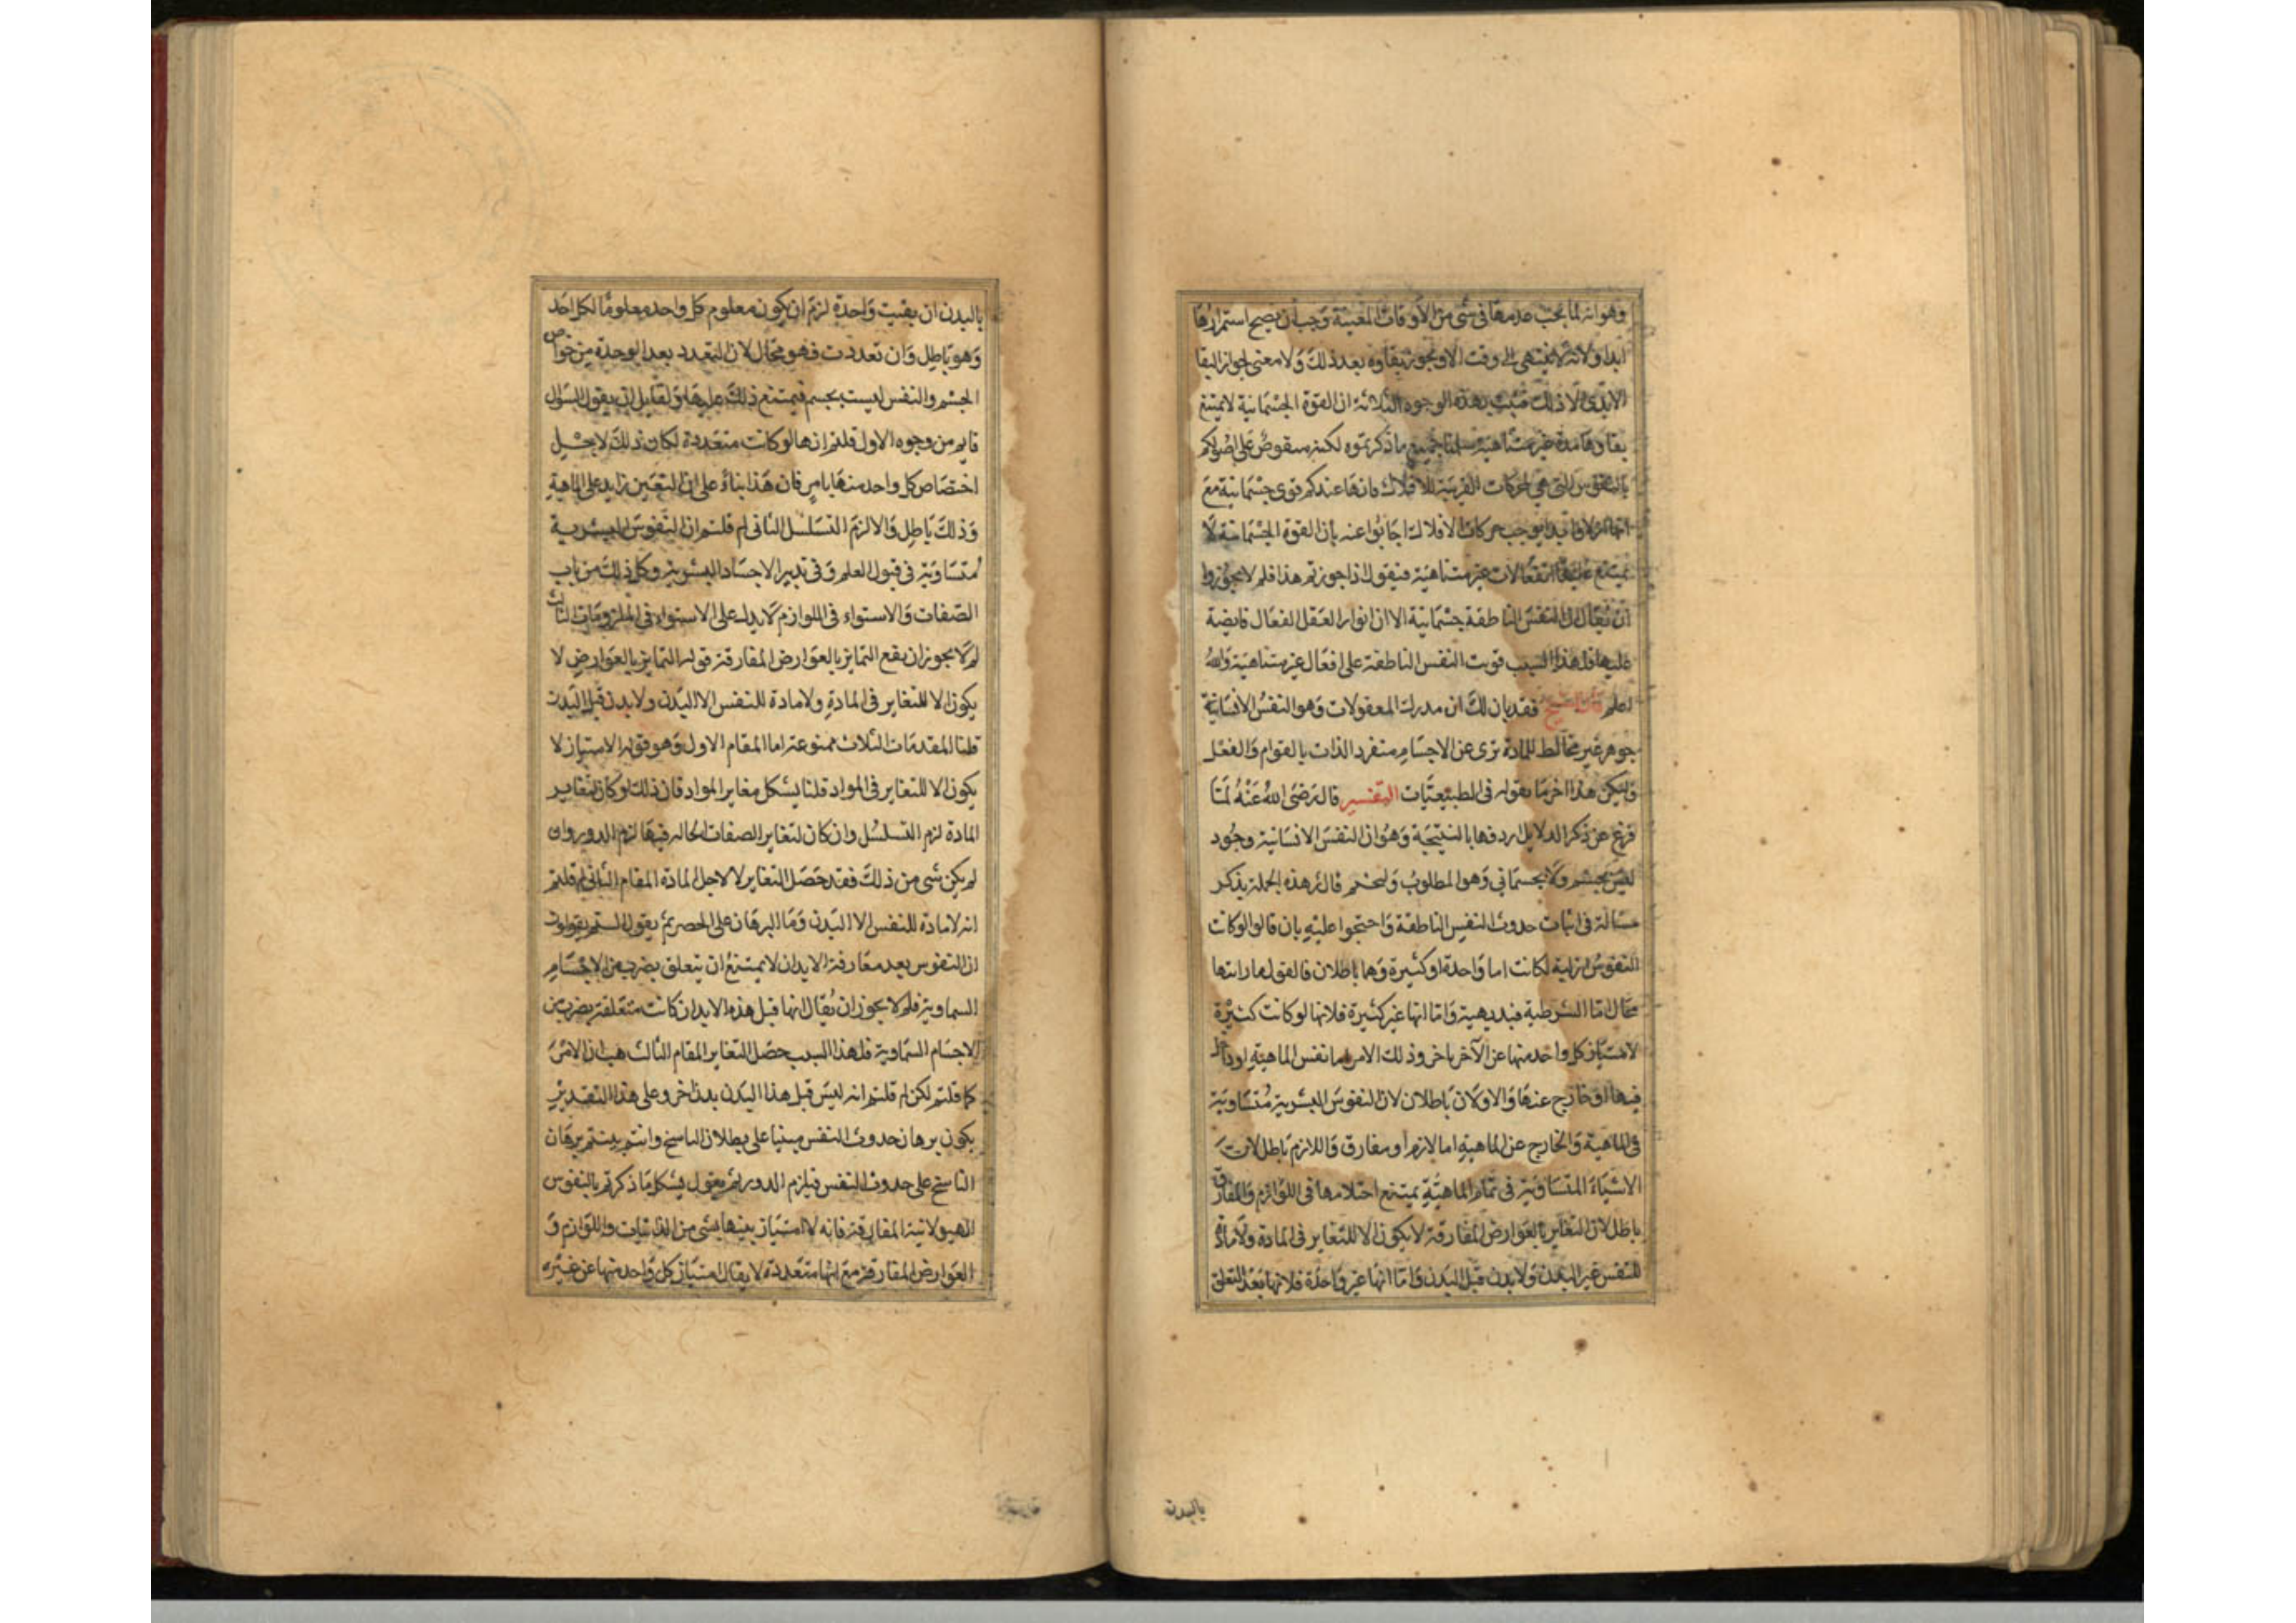 وهو انه لما يجب عدمها فى شى من الاوقات المعينة وجب ان يصح استمرارها
ابدا ولانه لا ينتهى الى وقت الا ويجوز بقاوه بعد ذلك ولا معنى لجواز البقا
الابدى الا ذلك فثبت بهذه الوجوه الثلاثة ان القوة الجسمانية لا يمتنع
بقاوها مدة غير متناهية سلمنا جميع ما ذكرتموه لكنه منقوض على اصولكم
بالنفوس التى هى المحركات القريبة للافلاك فانها عندكم قوى جسمانية مع
انها ابدا يوجب حركات الافلاك اجابوا عنه بان القوة الجسمانية لا
يمتنع عليها انفعالات غير متناهية فنقول اذا جوزتم هذا فلم لا يجوز وا
ان يقال ان النفس الناطقة جسمانية الا ان انوار العقل الفعال فايضة
عليها فلهذا السبب قويت النفس الناطقة على افعال غير متناهية والله
اعلم قال الشيخ فقد بان لك ان مدرك المعقولات وهو النفس الانسانية
جوهر غير مخالط للمادة برى عن الاجسام منفرد الذات بالقوام والفعل
وليكن هذا اخر ما نقوله فى الطبيعيات التفسير قال رضى الله عنه لما
فرغ عن ذكر الدلايل اردفها بالنتيجة وهو ان النفس الانسانية وجود
ليس بجسم ولا بجسمانى وهو المطلوب ولنختم قال هذه الجملة بذكر
مسالة فى اثبات حدوث النفس الناطقة واحتجوا عليه بان قالوا لو كانت
النفوس ازلية لكانت اما واحدة او كثيرة وهما باطلان فالقول بازليتها
محال اما الشرطية فبديهية واما انها غير كثيرة فلانها لو كانت كثيرة
لامتياز كل واحد منها عن الآخر باخر وذلك الامر اما نفس الماهية او داخل
فيها او خارج عنها والاولان باطلان لان النفوس البشرية متساوية
فى الماهية والخارج عن الماهية اما لازم او مفارق واللازم باطل لان
الاشياء المتساوية فى تمام الماهية يمتنع اختلافها فى اللوازم والمفارق
باطل لان التغاير بالعوارض المفارقة لا يكون الا للتغاير فى المادة ولا مادة
للنفس غير البدن ولا بدن قبل البدن واما انها غير واحدة فلانها بعد التعلق
بالبدن
بالبدن ان بقيت واحدة لزم ان يكون معلوم كل واحد معلوما لكل احد
وهو باطل وان تعددت فهو محال لان التعدد بعد الوحدة من خواص
الجسم والنفس ليست بجسم فيمتنع ذلك عليها ولقايل ان يقول السؤال
قايم من وجوه الاول قلتم انها لو كانت متعددة لكان ذلك لاجل
اختصاص كل واحد منها بامر فان هذا بناء على ان التعين زايد على الماهية
وذلك باطل والا لزم التسلسل الثانى لم قلتم ان النفوس البشرية
متساوية فى قبول العلم وفى تدبير الاجساد البشرية وكل ذلك من باب
الصفات والاستواء فى اللوازم لا يدل على الاستواء فى الملزومات الثالث
لم لا يجوز ان يقع التمايز بالعوارض المفارقة قوله التمايز بالعوارض لا
يكون الا للتغاير فى المادة ولا مادة للنفس الا البدن ولا بدن قبل البدن
قلنا المقدمات الثلاث ممنوعة اما المقام الاول وهو قوله الامتياز لا
يكون الا للتغاير فى المواد قلنا يشكل مغاير المواد فان ذلك لو كان لتغاير
المادة لزم التسلسل وان كان لتغاير الصفات الحالة فيها لزم الدور وان
لم يكن شى من ذلك فقد حصل التغاير لا لاجل المادة المقام الثانى لم قلتم
انه لا مادة للنفس الا البدن وما البرهان على الحصر ثم يقول الستم تقولون
ان النفوس بعد مفارقة الابدان لا يمتنع ان يتعلق بضرب من الاجسام
السماوية فلم لا يجوز ان يقال انها قبل هذه الابدان كانت متعلقة بضرب من
الاجسام السماوية فلهذا السبب حصل التغاير المقام الثالث هب ان الامر
كما قلتم لكن لم قلتم انه ليس قبل هذا البدن بدن اخر وعلى هذا التقدير
يكون برهان حدوث النفس مبنيا على بطلان التناسخ وانتم بينتم برهان
التناسخ على حدوث النفس فيلزم الدور ثم يقول يشكل ما ذكرتم بالنفوس
الهيولانية المفارقة فانه لا امتياز بينها بشى من الذاتيات واللوازم و
العوارض المفارقة مع انها متعددة لا يقال امتياز كل واحد منها عن غيره